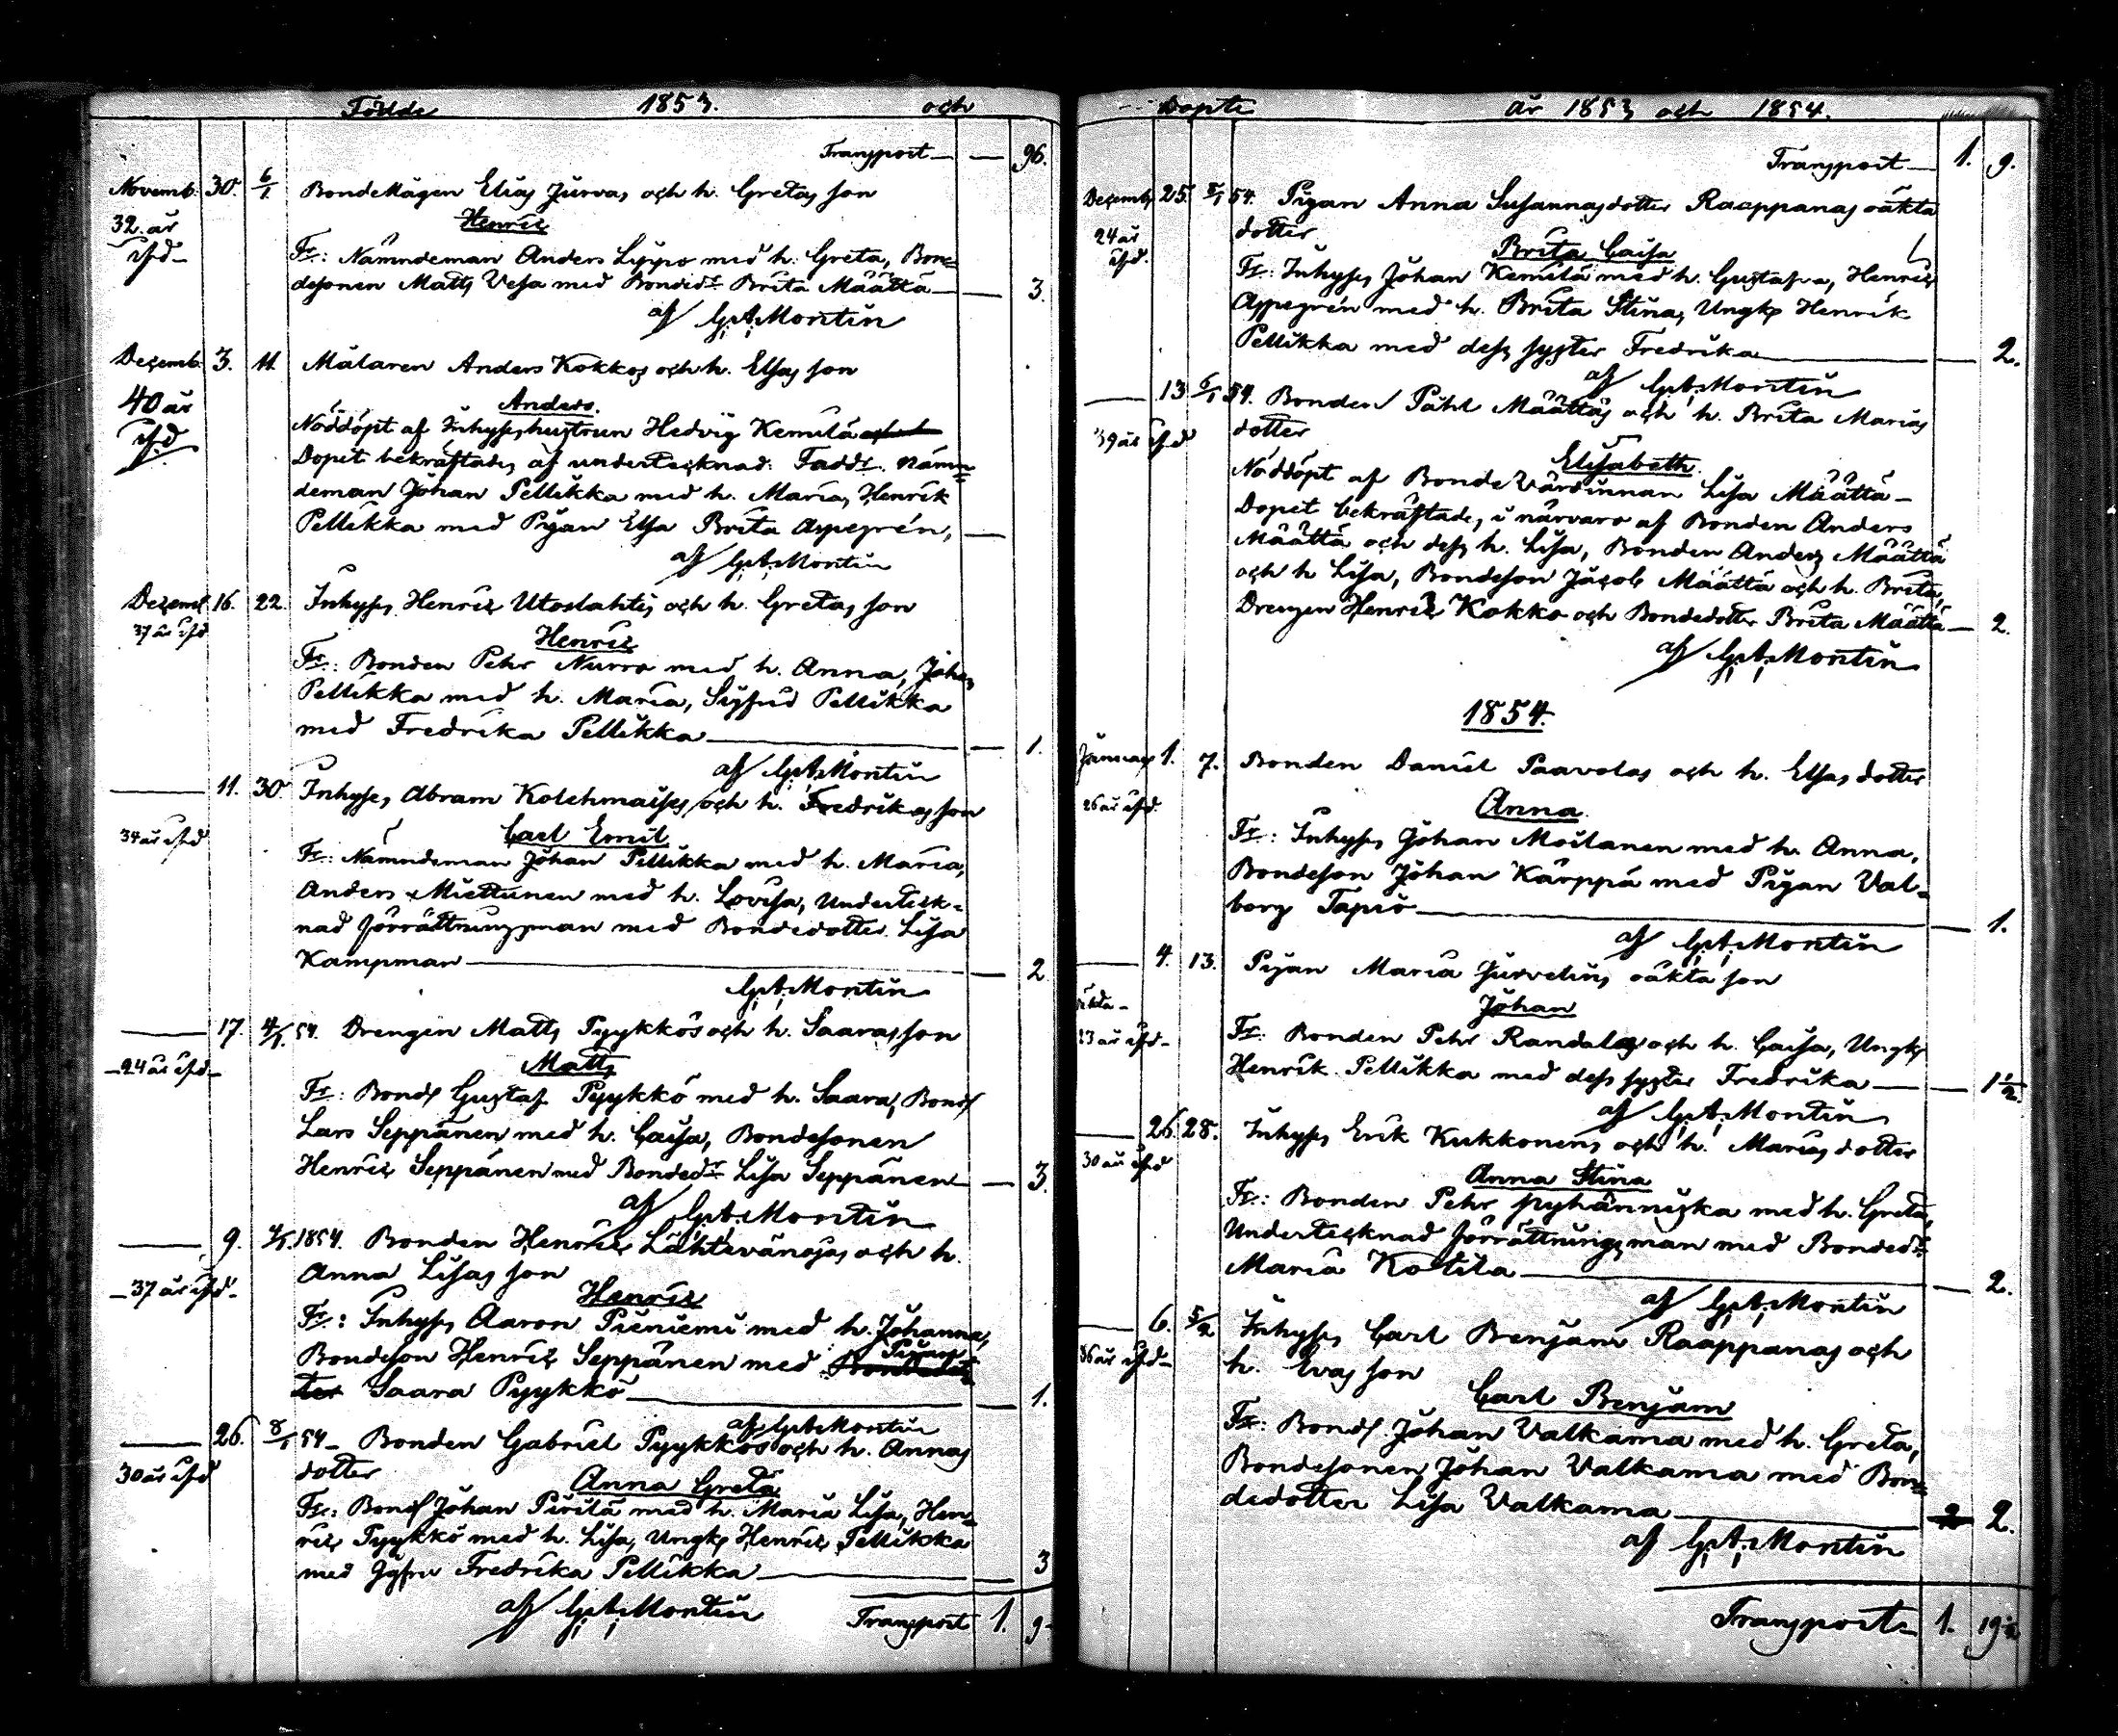 Födde 1853. och
Transport — — 96.
Novemb. 30. 6/1. BondeMågen Elias Jurvas och h. Gretas son
32. år Henric
Fr: Nämndeman Anders Lyypo med h. Greta, Bon=
desonen Matts Vesa med Bonded:r Brita Määttä — — 3.
af G.A. Montin
Decemb. 3. 11. Målaren Anders Kokkos och h. Elsas son
40 år Anders.
Nöddöpt af Inhyseshustrun Hedvig Kemilä
Dopet bekräftades af undertecknad: Fadd:r Nämn=
deman Johan Pellikka med h. Maria, Henrik
Pellikka med Pigan Elsa Brita Appegrén, —
af G.A. Montin
Decemb. 16. 22. Inhyses Henric Utoslahtis och h. Gretas son
37 år Henric
Fr: Bonden Pehr Nurro med h. Anna, Johan
Pellikka med h. Maria, Sigfrid Pellikka
med Fredrika Pellikka — — 1.
af G.A. Montin
— 11. 30. Inhyses Abram Kolehmaises och h. Fredrikas son
34 år Carl Emil
Fr: Nämndeman Johan Pellikka med h. Maria,
Anders Miettunen med h. Lovisa, Underteck=
nad förrättningsman med Bondedotter Lisa
Kampman — — 2
G.A. Montin
— 17. 4/1. 54. Drengen Matts Pyykkös och h. Saaras son
24 år Matts
Fr: Bond. Gustaf Pyykkö med h. Saara, Bond.
Lars Seppänen med h. Caisa, Bondesonen
Henric Seppänen med Bonded:r Lisa Seppänen — — 3.
af G.A. Montin
— 9. 1854. Bonden Henrics Lähtevänojas och h.
Anna Lisas son
37 år Henric
Fr: Inhyses Aaron Pieniemi med h. Johanna,
Bondeson Henric Seppänen med Pigan
Saara Pyykkö — — 1.
af G.A. Montin
— 26. 8/1 54 — Bonden Gabriel Pyykkös och h. Annas
30 år dotter
Anna Greta
Fr: Bond. Johan Pirilä med h. Maria Lisa, Hen=
ric Pyykkö med h. Lisa, Ungk. Henric Pellikka
med Fredrika Pellikka — — 3
af G.A. Montin
Transport 1. 9
Döpte år 1853 och 1854.
Transport — 1. 9.
Decemb. 25. 8/1 54. Pigan Anna Susannasdotter Raappanas oäkta
24 år dotter
Brita Caisa
Fr: Inhyses Johan Kemilä med h. Gustafva, Henric
Appegrén med h. Brita Stina, Ungk. Henrik
Pellikka med dess syster Fredrika — — 2.
af G.A. Montin
— 13 6/1 54. Bonden Påhl Määttäs och h. Brita Marias
39 år dotter
Elisabeth
Nöddöpt af BondeVärdinnan Lisa Määttä —
Dopet bekräftades, i närvaro af Bonden Anders
Määttä och dess h. Lisa, Bonden Anders Määttä
och h Lisa, Bondeson Jacob Määttä och h. Brita,
Drengen Henric Kokko och Bondedotter Brita Määttä — 2.
af G.A. Montin
1854.
Januari 1. 7. Bonden Daniel Paavolas och h. Elsas dotter
26 år Anna
Fr: Inhyses Johan Moilanen med h. Anna,
Bondeson Johan Kärppä med Pigan Val=
borg Tapio — — 1.
af G.A. Montin
— 4. 13. Pigan Maria Jurvelins oäkta son
Johan
23 år Fr: Bonden Pehr Randala och h. Caisa, Ungk.
Henrik Pellikka med dess syster Fredrika — — 1½
af G.A. Montin
— 26. 28. Inhyses Erik Kukkonens och h. Marias dotter
30 år Anna Stina
Fr: Bonden Pehr pyhänniska med h. Greta,
Undertecknad förrättningsman med Bonded:r
Maria Kotila — — 2.
af G.A. Montin
— 6. 5/2 Inhyses Carl Benjam Raappanas och
36 år h. Evas son
Carl Benjam
Fr: Bond. Johan Valkama med h. Greta,
Bondesonen Johan Valkama med Bon=
dedotter Lisa Valkama — 2.
af G.A. Montin
Transport — 1. 19½